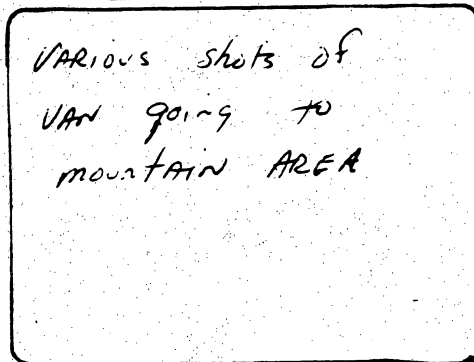 VARIOUS shots of
VAN going to
mountAIN AREA